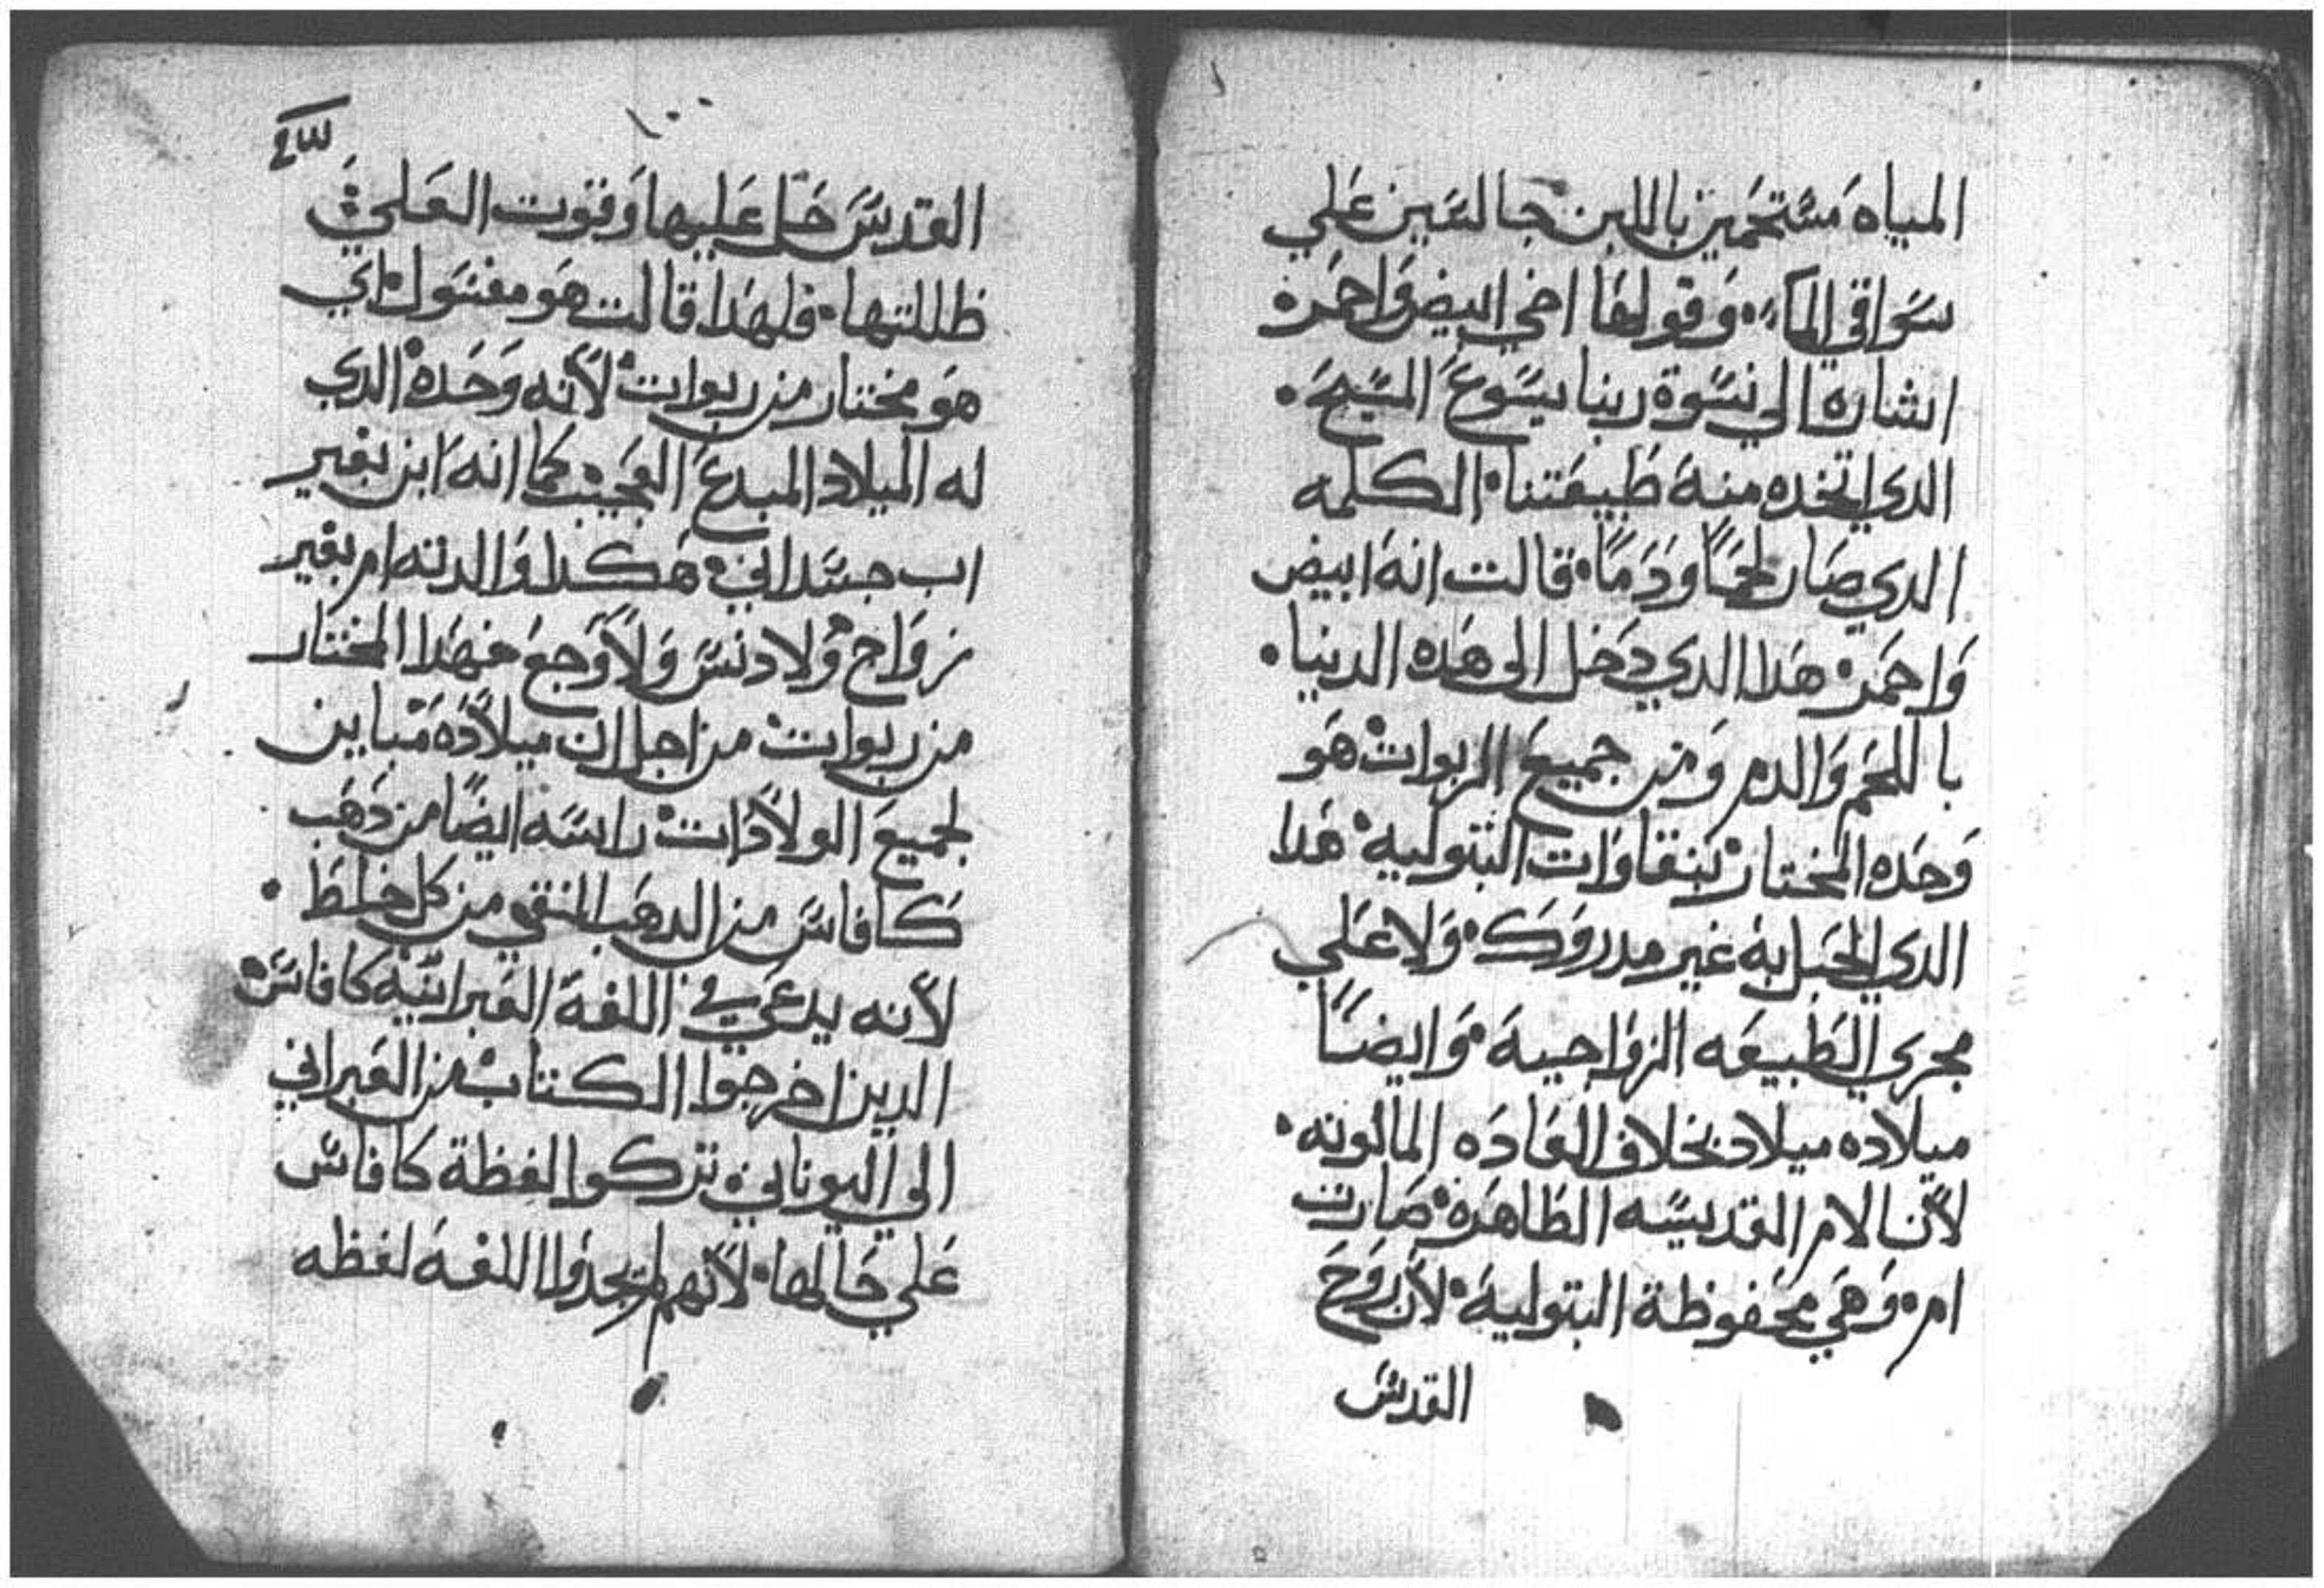 المياه مستحمين باللبن جالسين علي
سواقي الماء، وقولها اخي ابيض واحمر
اشارة الي نسوة ربنا يسوع المسيح.
الدي اتخده منه طبيعتنا الكلمه
الدي صار لحماً ودماً. قالت انه ابيض
واحمر هدا الدي دخل الى هده الدنيا.
باللحم والدم ومن جميع الربوات هو
وحده المختار بنقاوات البتوليه هدا
الدي الحبل به غير مدروك. ولا علي
مجري الطبيعه الزواجية. وايضاً
ميلاده ميلاد بخلاف العاده المالوفه.
لأن الام القديسه الطاهرة صارت
ام. وهي محفوظة البتولية. لأن روح
القدس
القدس حل عليها وقوت العلي
ظللتها. فلهدا قالت هو مغسول اي
هو مختار من ربوات لأنه وحده الدي
له الميلاد المبدع العجيب كما انه ابن بغير
اب جسداني هكدا والدته ام بغير
زواج ولا دنس ولا وجع فهدا المختار
من ربوات من اجل ان ميلاده مباين
لجميع الولادات راسه ايضاً من دهب
كافاس من الدهب المنقي من كل خلط.
لأنه يدعي في اللغة العبرانية كافاس
الدين اخرجوا الكتاب من العبراني
الي اليوناني تركوا لفظة كافاس
علي حالها. لأنهم لم يجدوا اللغة لفظه